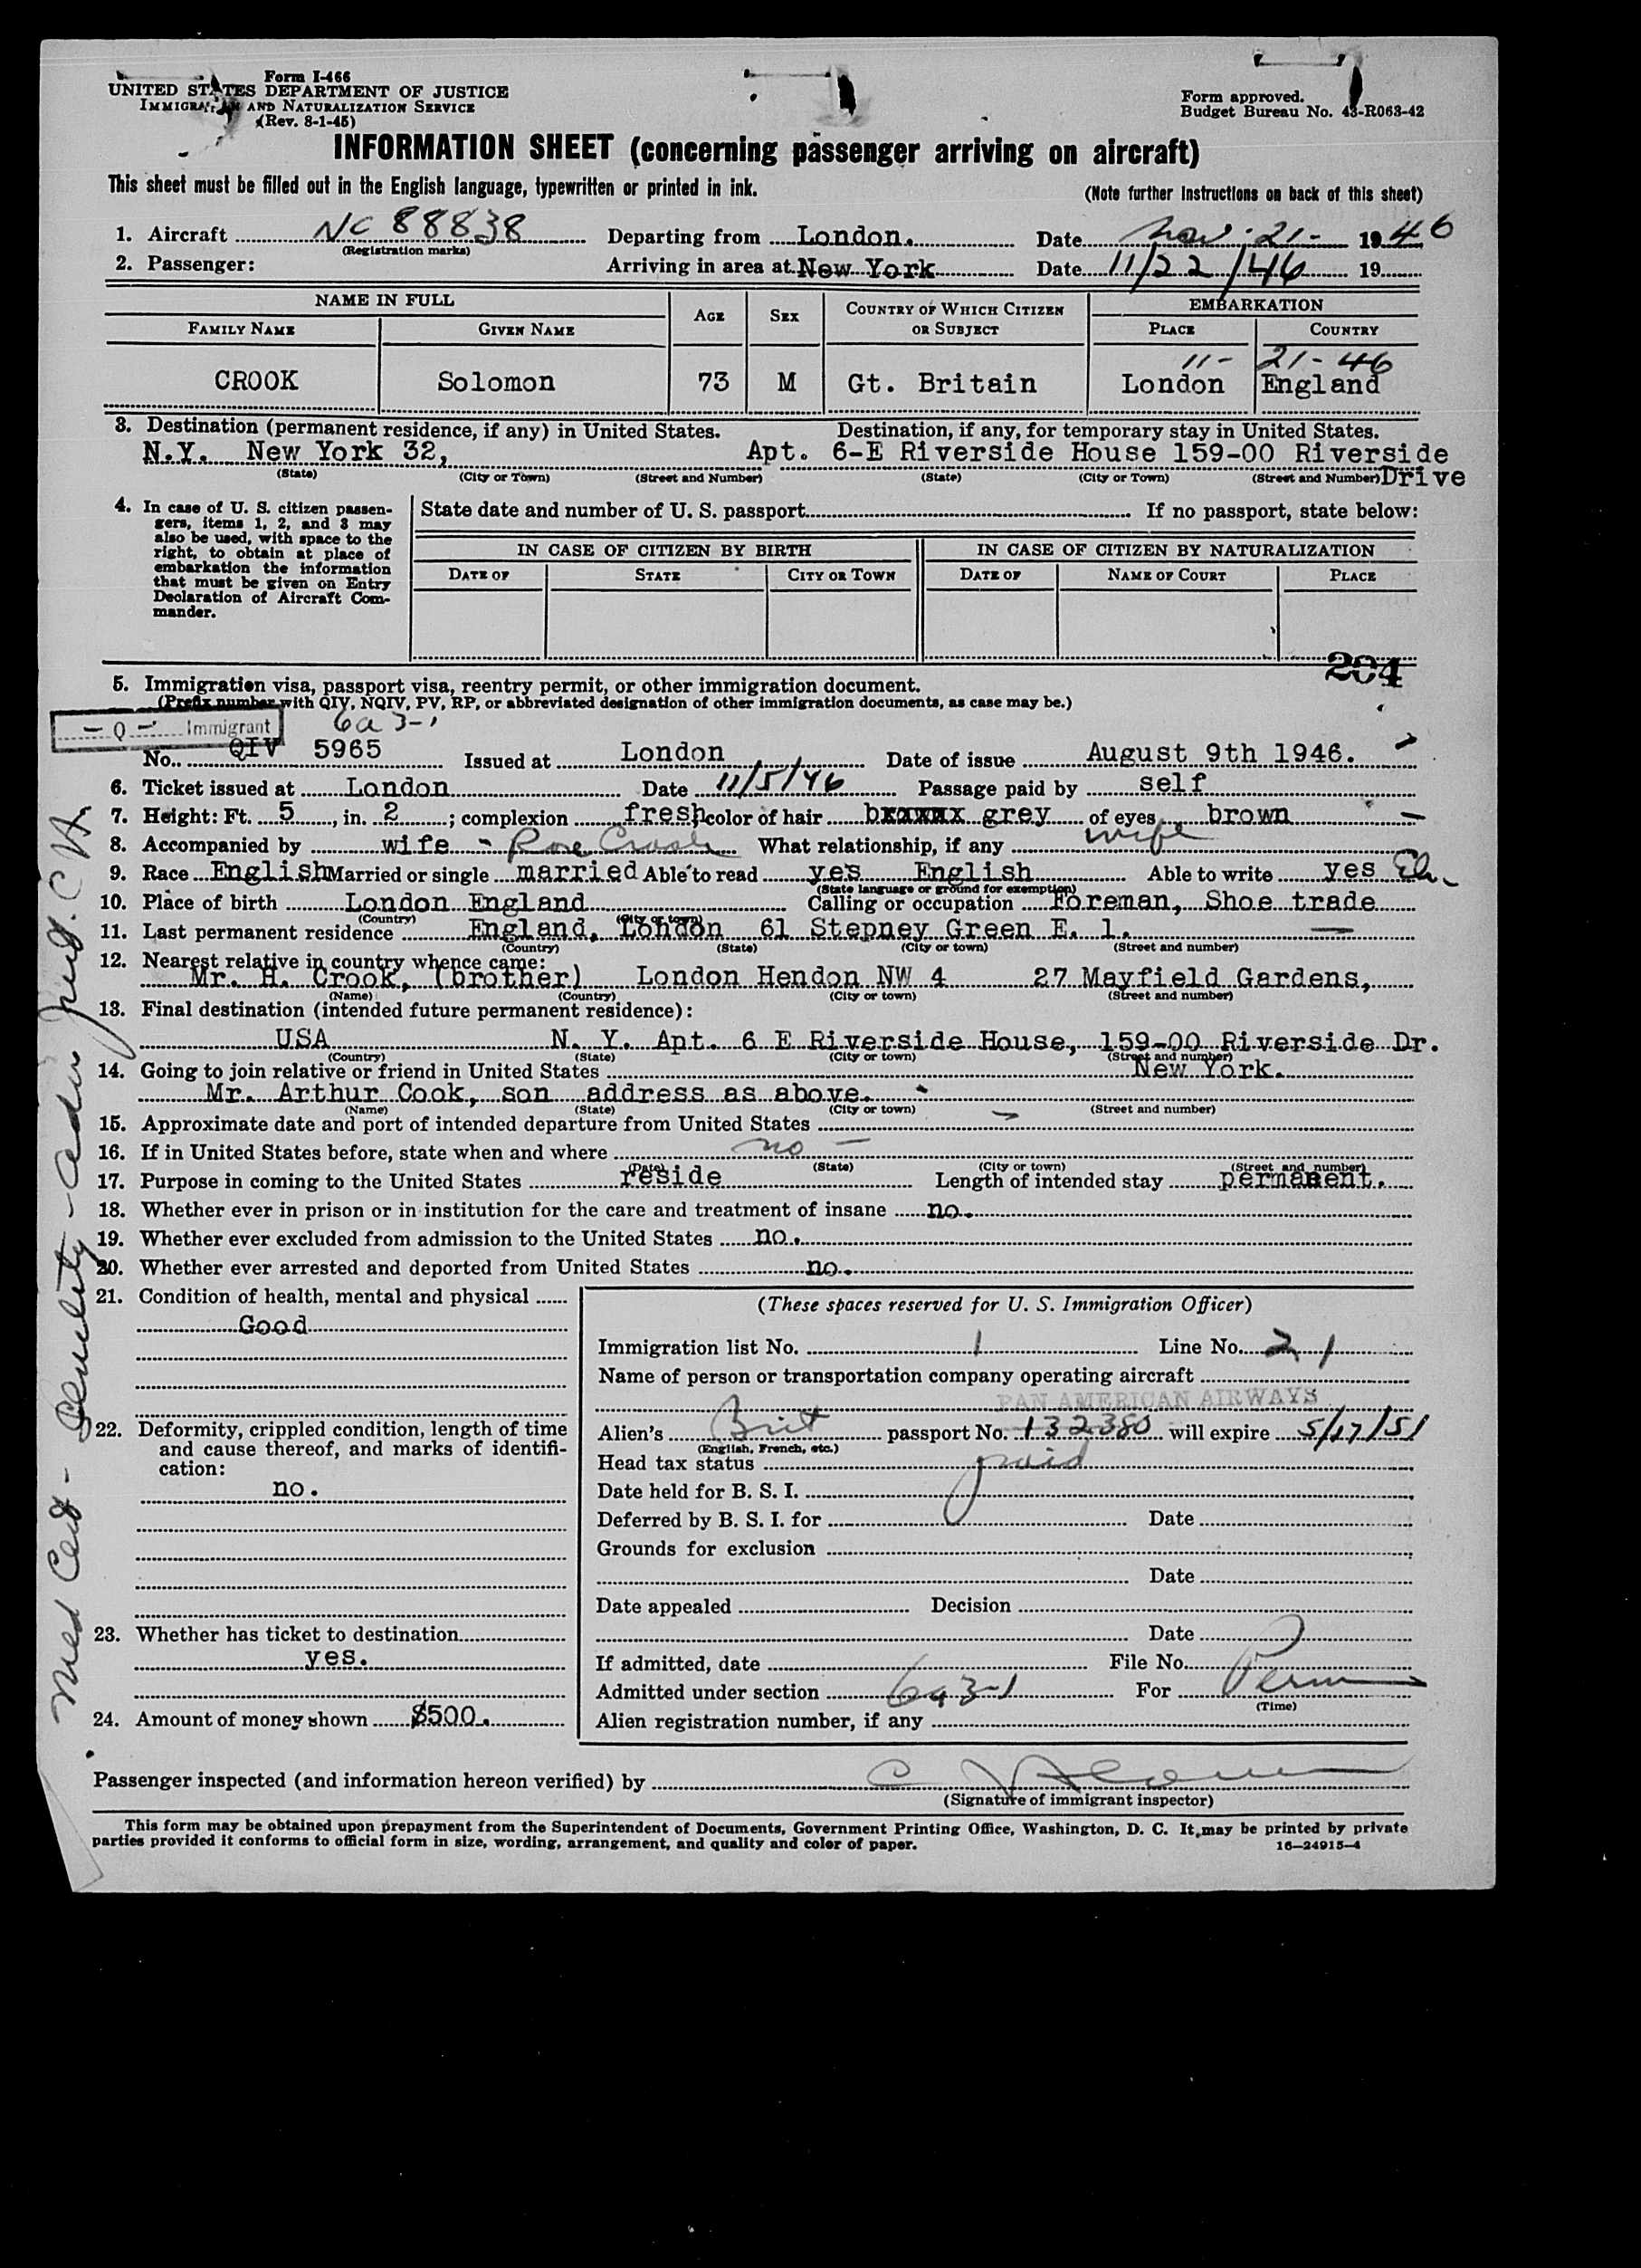 Form I-466
UNITED STATES DEPARTMENT OF JUSTICE
IMMIGRATION AND NATURALIZATION SERVICE
(Rev. 8-1-45)
Form approved.
Budget Bureau No. 43-R063-42
INFORMATION SHEET (concerning passenger arriving on aircraft)
This sheet must be filled out in the English language, typewritten or printed in ink.
(Note further instructions on back of this sheet)
1. Aircraft NC 88838 Departing from London. Date Nov. 21- 1946
(Registration marks)
2. Passenger: Arriving in area at New York Date 11/22/46 19
NAME IN FULL AGE SEX COUNTRY OF WHICH CITIZEN OR SUBJECT EMBARKATION
FAMILY NAME GIVEN NAME PLACE COUNTRY
11- 21-46
CROOK Solomon 73 M Gt. Britain London England
3. Destination (permanent residence, if any) in United States. Destination, if any, for temporary stay in United States.
N.Y. New York 32, Apt. 6-E Riverside House 159-00 Riverside
(State) (City or Town) (Street and Number) (State) (City or Town) (Street and Number) Drive
4. In case of U. S. citizen passengers, items 1, 2, and 3 may also be used, with space to the right, to obtain at place of embarkation the information that must be given on Entry Declaration of Aircraft Commander.
State date and number of U. S. passport If no passport, state below:
IN CASE OF CITIZEN BY BIRTH IN CASE OF CITIZEN BY NATURALIZATION
DATE OF STATE CITY OR TOWN DATE OF NAME OF COURT PLACE
204
5. Immigration visa, passport visa, reentry permit, or other immigration document.
(Prefix number with QIV, NQIV, PV, RP, or abbreviated designation of other immigration documents, as case may be.)
- Q - Immigrant 6a3-1
No. QIV 5965 Issued at London Date of issue August 9th 1946.
6. Ticket issued at London Date 11/5/46 Passage paid by self
7. Height: Ft. 5, in. 2; complexion fresh color of hair brxxxx grey of eyes brown
8. Accompanied by wife - Rose Crook What relationship, if any wife
9. Race English Married or single married Able to read yes English Able to write yes
(State language or ground for exemption)
10. Place of birth London England Calling or occupation Foreman, Shoe trade
(Country) (City or town)
11. Last permanent residence England, London 61 Stepney Green E. 1.
(Country) (State) (City or town) (Street and number)
12. Nearest relative in country whence came:
Mr. H. Crook, (brother) London Hendon NW 4 27 Mayfield Gardens,
(Name) (Country) (City or town) (Street and number)
13. Final destination (intended future permanent residence):
USA N. Y. Apt. 6 E Riverside House, 159-00 Riverside Dr.
(Country) (State) (City or town) (Street and number)
14. Going to join relative or friend in United States New York.
Mr. Arthur Cook, son address as above.
(Name) (State) (City or town) (Street and number)
15. Approximate date and port of intended departure from United States
16. If in United States before, state when and where no
(Date) (State) (City or town) (Street and number)
17. Purpose in coming to the United States reside Length of intended stay permanent.
18. Whether ever in prison or in institution for the care and treatment of insane no.
19. Whether ever excluded from admission to the United States no.
20. Whether ever arrested and deported from United States no.
21. Condition of health, mental and physical
Good
22. Deformity, crippled condition, length of time and cause thereof, and marks of identification:
no.
23. Whether has ticket to destination
yes.
24. Amount of money shown $500.
(These spaces reserved for U. S. Immigration Officer)
Immigration list No. 1 Line No. 21
Name of person or transportation company operating aircraft
PAN AMERICAN AIRWAYS
Alien's Brit passport No. 132380 will expire 5/17/51
(English, French, etc.)
Head tax status paid
Date held for B. S. I.
Deferred by B. S. I. for Date
Grounds for exclusion
Date
Date appealed Decision
Date
If admitted, date File No.
Admitted under section 6a3-1 For Perm
(Time)
Alien registration number, if any
Passenger inspected (and information hereon verified) by
(Signature of immigrant inspector)
This form may be obtained upon prepayment from the Superintendent of Documents, Government Printing Office, Washington, D. C. It may be printed by private
parties provided it conforms to official form in size, wording, arrangement, and quality and color of paper.
16-24915-4
Med Cert - Senility -